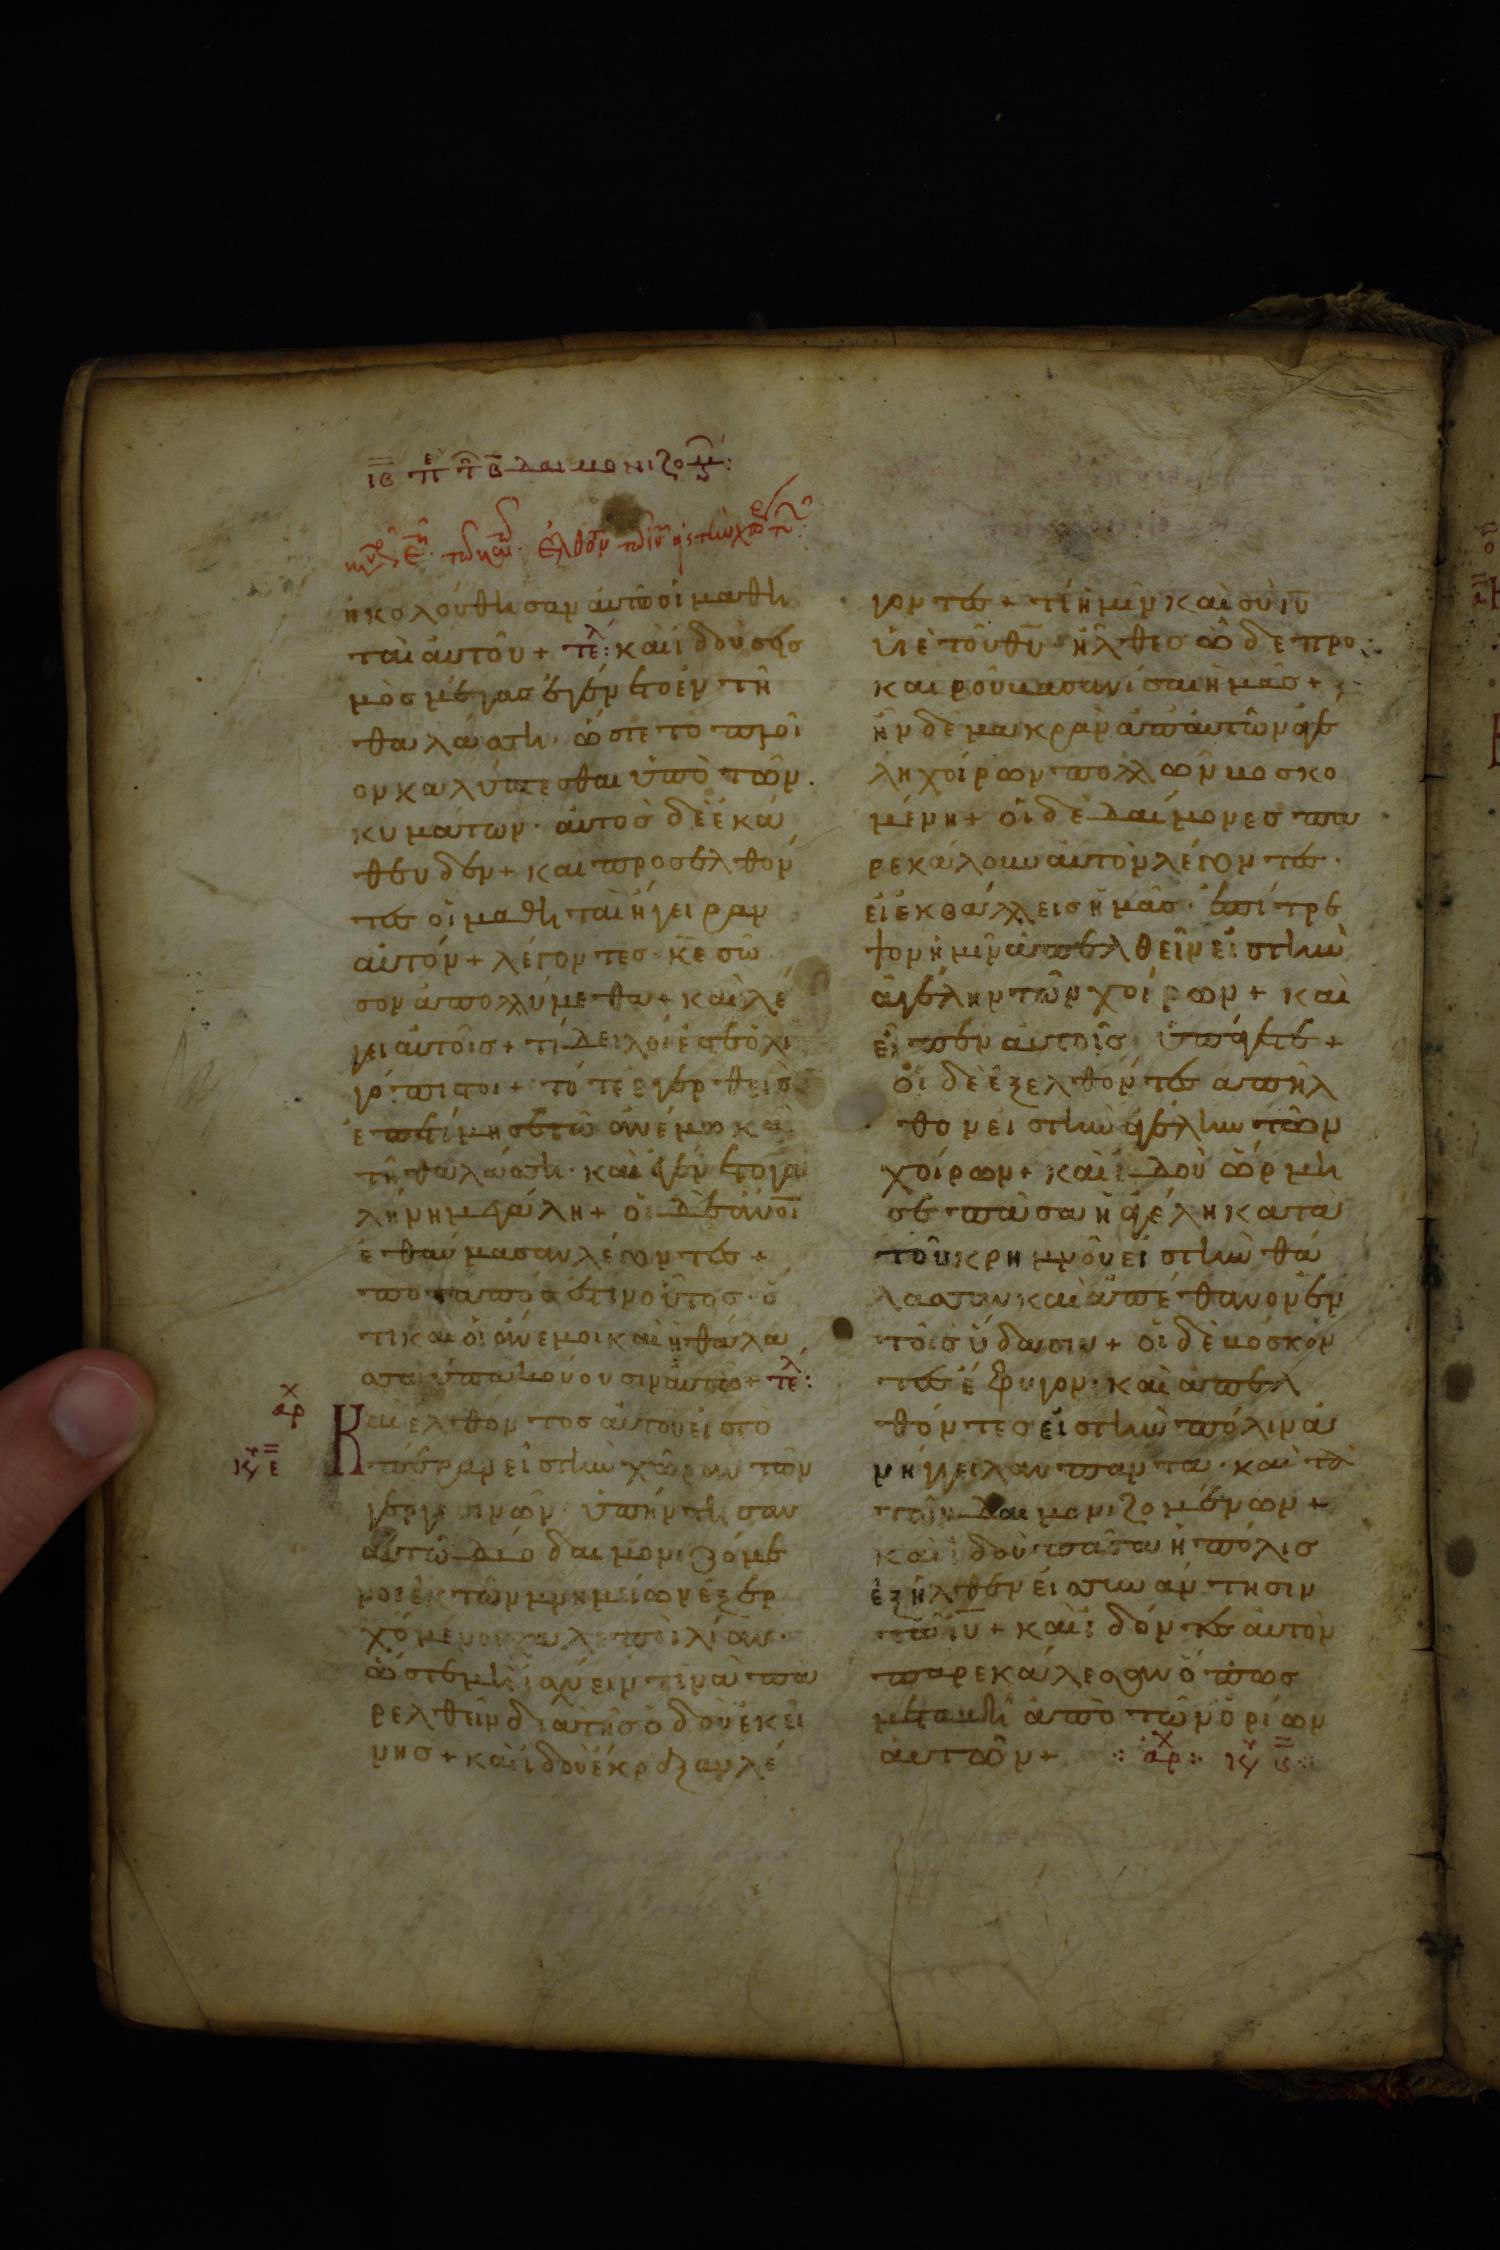 ιβ πε τ β δαιμονιζομ:
ἠκολούθησαν αὐτῶ οἱ μαθη
ταὶ αὐτοῦ + τελ: καὶ ἰδοὺ σεισ
μὸς μέγας ἐγένετο ἐν τῆ
θαλάσση· ὥστε τὸ πλοῖ
ον καλύπτεσθαι ὑπὸ τῶν
κυμάτων· αὐτὸς δὲ ἐκά
θευδεν + καὶ προσελθόν
τες οἱ μαθηταὶ ἤγειραν
αὐτόν + λέγοντες· κε σῶ
σον ἀπολλύμεθα + καὶ λέ
γει αὐτοῖς + τί δειλοί ἐστε ὀλι
γόπιστοι + τότε ἐγερθεὶς
ἐπετίμησε τῶ ἀνέμω καὶ
τῆ θαλάσση· καὶ ἐγένετο γα
λήνη μεγάλη + οἱ δὲ ἄνοι
ἐθαύμασαν λέγοντες +
ποταπός ἐστιν οὗτος· ὅ
τι καὶ οἱ ἄνεμοι καὶ ἡ θάλα
σσα ὑπακούουσιν αὐτῶ + τελ:
αρχ
κυ ε
Καὶ ἐλθόντος αὐτοῦ εἰς τὸ
πέραν εἰς τὴν χώραν τῶν
γεργεσινῶν· ὑπήντησαν
αὐτῶ δύο δαιμονιζόμε
νοι ἐκ τῶν μνημείων ἐξερ
χόμενοι χαλεποὶ λίαν·
ὥστε μὴ ἰσχύειν τινὰ πα
ρελθεῖν διὰ τῆς ὁδοῦ ἐκεί
νης + καὶ ἰδοὺ ἔκραξαν λέ
γοντες + τί ἡμῖν καὶ σὺ ιυ
υἱὲ τοῦ θυ· ἦλθες ὧδε πρὸ
καιροῦ βασανίσαι ἡμᾶς +
ἦν δὲ μακρὰν ἀπ αὐτῶν ἀγέ
λη χοίρων πολλῶν βοσκο
μένη + οἱ δὲ δαίμονες πα
ρεκάλουν αὐτὸν λέγοντες·
εἰ ἐκβάλλεις ἡμᾶς· ἐπίτρε
ψον ἡμῖν ἀπελθεῖν εἰς τὴν
ἀγέλην τῶν χοίρων + καὶ
εἶπεν αὐτοῖς ὑπάγετε +
οἱ δὲ ἐξελθόντες ἀπῆλ
θον εἰς τὴν ἀγέλην τῶν
χοίρων + καὶ ἰδοὺ ὥρμη
σε πᾶσα ἡ ἀγέλη κατὰ
τοῦ κρημνοῦ εἰς τὴν θά
λασσαν καὶ ἀπέθανον ἐν
τοῖς ὕδασιν + οἱ δὲ βόσκον
τες ἔφυγον· καὶ ἀπελ
θόντες εἰς τὴν πόλιν ἀ
νήγγειλαν πάντα· καὶ τὰ
τῶν δαιμονιζομένων +
καὶ ἰδοὺ πᾶσα ἡ πόλις
ἐξῆλθεν εἰς συνάντησιν
τῶ ιυ + καὶ ἰδόντες αὐτὸν
παρεκάλεσαν ὅπως
μεταβῆ ἀπὸ τῶν ὁρίων
αὐτῶν + αρχ: κυ ϛ